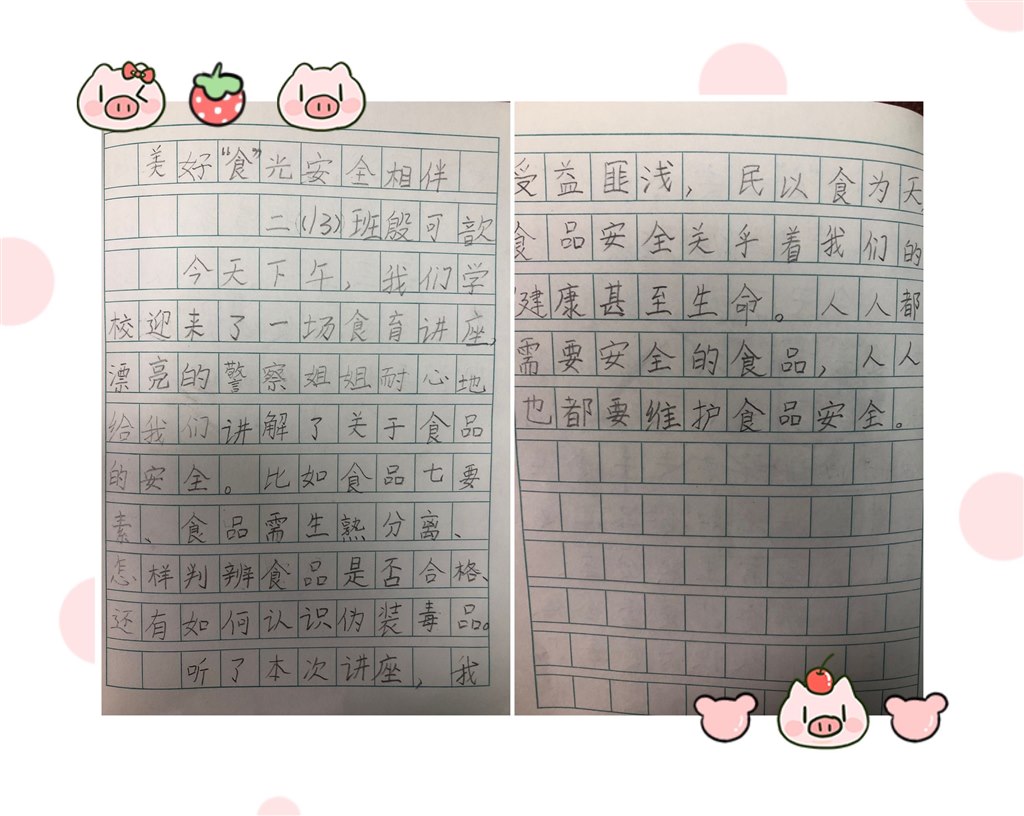 美好“食”光安全相伴
二(13)班殷可歆
今天下午，我们学
校迎来了一场食育讲座，
漂亮的警察姐姐耐心地
给我们讲解了关于食品
的安全。比如食品七要
素、食品需生熟分离、
怎样判辨食品是否合格、
还有如何认识伪装毒品。
听了本次讲座，我
受益匪浅，民以食为天
食品安全关乎着我们的
健康甚至生命。人人都
需要安全的食品，人人
也都要维护食品安全。